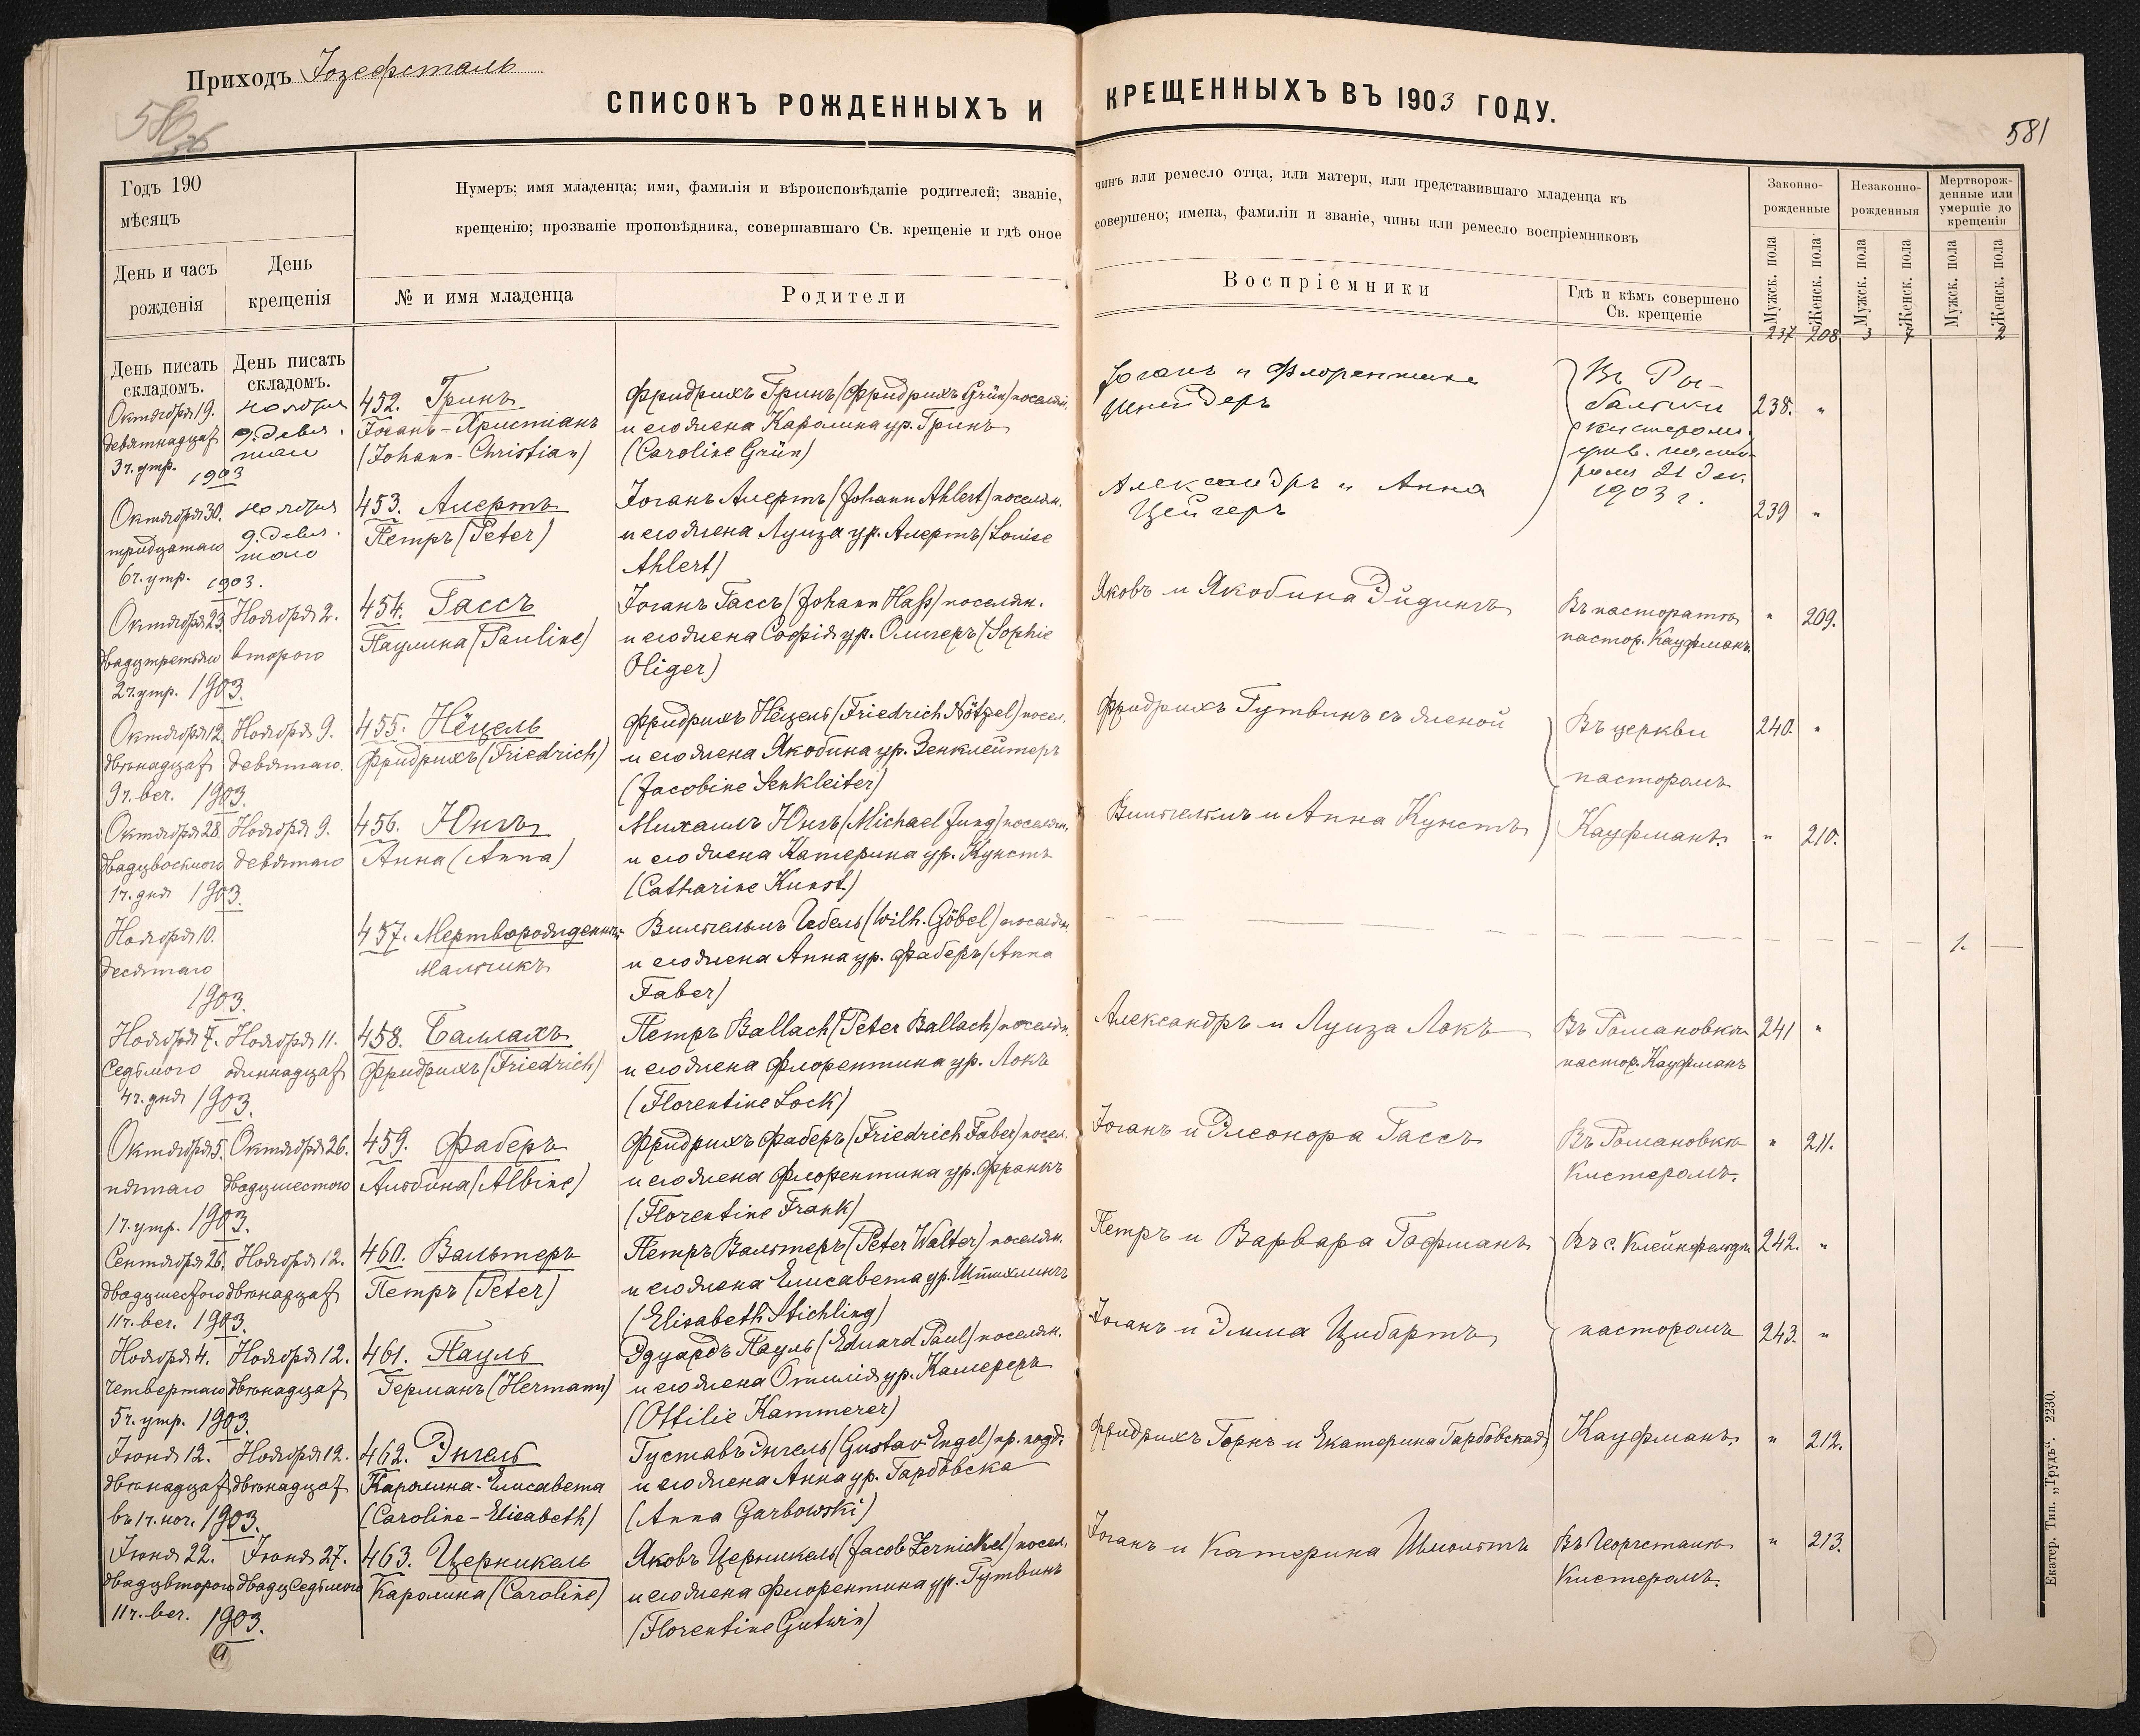 Приходъ Іозефсталь
СПИСОКЪ РОЖДЕННЫХЪ И КРЕЩЕННЫХЪ ВЪ 1903 ГОДУ.
581
Годъ 190
мѣсяцъ
День и часъ
рожденія
День
крещенія
Нумеръ; имя младенца; имя, фамилія и вѣроисповѣданіе родителей; званіе,
крещенію; прозваніе проповѣдника, совершавшаго Св. крещеніе и гдѣ оное
№ и имя младенца
Родители
чинъ или ремесло отца, или матери, или представившаго младенца къ
совершено; имена, фамиліи и званіе, чины или ремесло воспріемниковъ
Воспріемники
Гдѣ и кѣмъ совершено
Св. крещеніе
Законно-
рожденные
Незаконно-
рожденныя
Мертворож-
денные или
умершіе до
крещенія
Мужск. пола
Женск. пола
Мужск. пола
Женск. пола
Мужск. пола
Женск. пола
237 208 3 7 2
День писать
складомъ.
День писать
складомъ.
Октября 19.
девятнадцат
3ч. утр.
1903
ноября
9. девя-
таго
452. Гринъ
Іоганъ-Христіанъ
(Johann-Christian)
Фридрихъ Гринъ (Фридрихъ Grün) поселян.
и его жена Каролина ур. Гринъ
(Caroline Grün)
Іоганъ и Флорентина
Шнейдеръ
Въ Ры-
бальски
кистеромъ
21 Дек.
1903 г.
238. "
Октября 30.
тридцатаго
6ч. утр. 1903.
ноября
9. девя-
таго
453. Алертъ
Петръ (Peter)
Іоганъ Алертъ (Johann Ahlert) поселян.
и его жена Луиза ур. Алертъ (Louise
Ahlert)
Александръ и Анна
Цейгеръ
239 "
Октября 23.
двадцтретьяго
2ч. утр. 1903.
Ноября 2.
второго
454. Гассъ
Паулина (Pauline)
Іоганъ Гассъ (Johann Haß) поселян.
и его жена Софія ур. Олигеръ (Sophie
Oliger)
Яковъ и Якобина Эйдингъ
Въ пасторатѣ
пастор. Кауфманъ.
" 209.
Октября 12.
двѣнадцат
9ч. веч. 1903.
Ноября 9.
девятаго.
455. Нёцель
Фридрихъ (Friedrich)
Фридрихъ Нёцель (Friedrich Nötzel) посел.
и его жена Якобина ур. Зенклейтеръ
(Jacobine Senkleiter)
Фридрихъ Гутвинъ съ женой
Въ церкви
пасторомъ
240. "
Октября 28.
двадцвосьмого
1ч. дня 1903.
Ноября 9.
девятаго
456. Юнгъ
Анна (Anna)
Михаилъ Юнгъ (Michael Jung) поселян.
и его жена Катерина ур. Кунстъ
(Catharine Kunst)
Вильгельмъ и Анна Кунстъ
Кауфманъ.
" 210.
Ноября 10.
десятаго
1903.
457. Мертворожденный
Мальчикъ
Вильгельмъ Гебель (Wilh. Göbel) поселян.
и его жена Анна ур. Фаберъ (Anna
Faber)
1.
Ноября 7.
Седьмого
4ч. дня 1903.
Ноября 11.
одиннадцат
458. Баллахъ
Фридрихъ (Friedrich)
Петръ Ballach (Peter Ballach) поселян.
и его жена Флорентина ур. Локъ
(Florentine Lock)
Александръ и Луиза Локъ
Въ Романовкѣ
пастор. Кауфманъ
241 "
Октября 5.
пятаго
1ч. утр. 1903.
Октября 26.
двадцшестого
459. Фаберъ
Альбина (Albine)
Фридрихъ Фаберъ (Friedrich Faber) посел.
и его жена Флорентина ур. Франкъ
(Florentine Frank)
Іоганъ и Элеонора Гассъ
Въ Романовкѣ
Кистеромъ.
" 211.
Сентября 26.
двадцшестого
11ч. веч. 1903.
Ноября 12.
двѣнадцат
460. Вальтеръ
Петръ (Peter)
Петръ Вальтеръ (Peter Walter) поселян.
и его жена Елисавета ур. Штихлингъ
(Elisabeth Stichling)
Петръ и Варвара Гофманъ
Въ с. Клейнфельдъ
242. "
Ноября 4.
четвертаго
5ч. утр. 1903.
Ноября 12.
двѣнадцат
461. Пауль
Германъ (Hermann)
Эдуардъ Пауль (Eduard Paul) поселян.
и его жена Отилія ур. Камереръ
(Ottilie Kammerer)
Іоганъ и Эмма Цибартъ
пасторомъ
243. "
Іюня 12.
двѣнадцат
въ 1ч. ноч. 1903.
Ноября 12.
двѣнадцат
462. Энгель
Каролина-Елисавета
(Caroline-Elisabeth)
Густавъ Энгель (Gustav Engel) пр. подд.
и его жена Анна ур. Гарбовска
(Anna Garbowski)
Фридрихъ Горнъ и Екатерина Гарбовская
Кауфманъ.
" 212.
Іюня 22.
двадцвторого
11ч. веч. 1903.
Іюня 27.
двадцседьмого
463. Церникель
Каролина (Caroline)
Яковъ Церникель (Jacob Zernickel) посел.
и его жена Флорентина ур. Гутвинъ
(Florentine Gutwin)
Іоганъ и Катерина Шмольтъ
Въ Георгсталѣ
Кистеромъ.
" 213.
Екатер. Тип. „Трудъ". 2230.